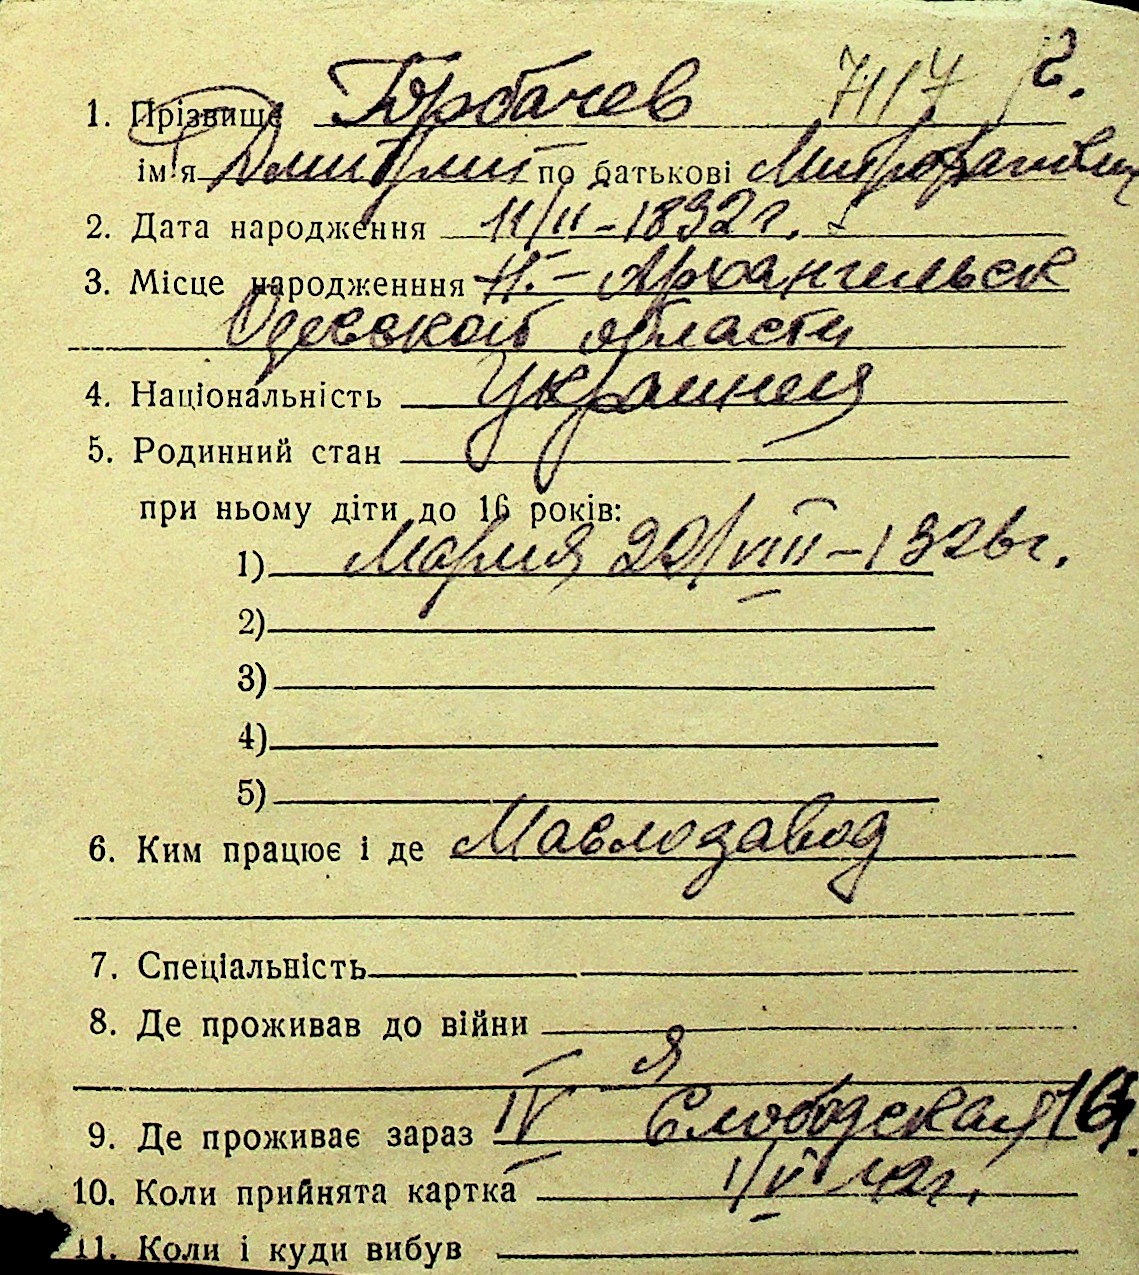 7117 г.
1. Прізвище Горбачев
ім'я Дмитрий по батькові Митрофанович
2. Дата народження 11/II-1892г.
3. Місце народженння Н.-Архангельск
Одесской области
4. Національність Украинец
5. Родинний стан
при ньому діти до 16 років:
1) Мария 22/VIII-1926г.
2)
3)
4)
5)
6. Ким працює і де Маслозавод
7. Спеціальність
8. Де проживав до війни
9. Де проживає зараз IV я Слободская
10. Коли прийнята картка 1/V 42г.
11. Коли і куди вибув